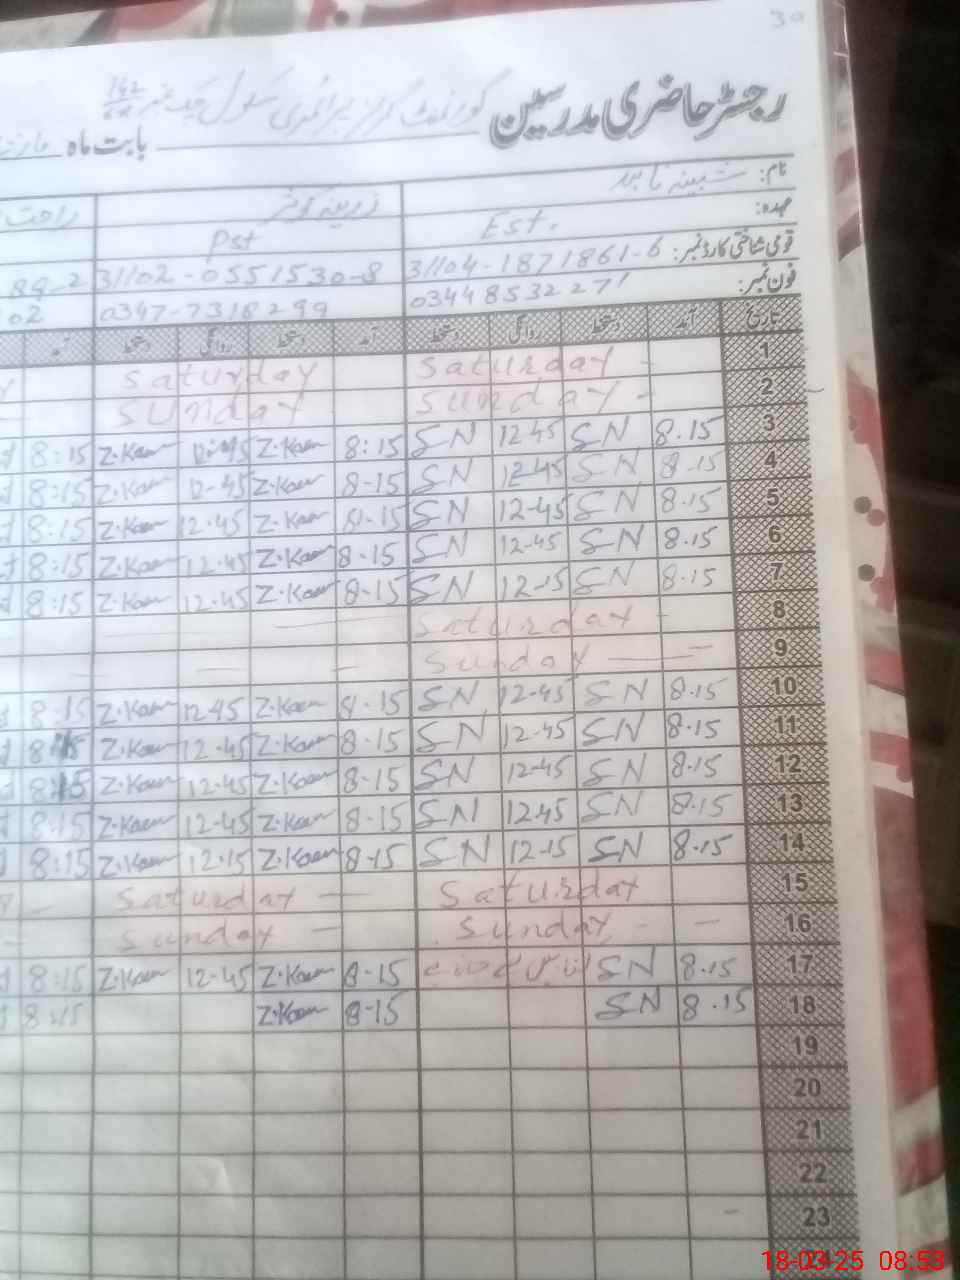 30
رجسٹر حاضری مدرسین گورنمنٹ گرلز پرائمری سکول چک نمبر 142
بابت ماہ مارچ
نام: شبینہ ناہید زرینہ کوثر راحت
عہدہ: Est. Pst
قومی شناختی کارڈ نمبر: 31104-1871861-6 31102-0551530-8 89-2
فون نمبر: 03448532271 0347-7318299 02
تاریخ آمد دستخط روانگی دستخط آمد دستخط روانگی دستخط آمد
1 Saturday Saturday
2 Sunday Sunday
3 8.15 SN 12-45 SN 8:15 Z.Kaur 12-45 Z.Kaur 8:15
4 8.15 SN 12-45 SN 8-15 Z.Kaur 12-45 Z.Kaur 8:15
5 8.15 SN 12-45 SN 8-15 Z.Kaur 12.45 Z.Kaur 8:15
6 8.15 SN 12-45 SN 8-15 Z.Kaur 12.45 Z.Kaur 8:15
7 8.15 SN 12-15 SN 8-15 Z.Kaur 12.45 Z.Kaur 8:15
8 Saturday
9 Sunday
10 8.15 SN 12-45 SN 8.15 Z.Kaur 12-45 Z.Kaur 8:15
11 8.15 SN 12-45 SN 8-15 Z.Kaur 12.45 Z.Kaur 8:15
12 8.15 SN 12-45 SN 8-15 Z.Kaur 12.45 Z.Kaur 8:15
13 8.15 SN 12.45 SN 8-15 Z.Kaur 12-45 Z.Kaur 8:15
14 8.15 SN 12-15 SN 8-15 Z.Kaur 12.15 Z.Kaur 8:15
15 Saturday Saturday
16 Sunday Sunday
17 8.15 SN 8-15 Z.Kaur 12-45 Z.Kaur 8:15
18 8.15 SN 8-15 Z.Kaur 8:15
19
20
21
22
23
24
18-03-25 08:53